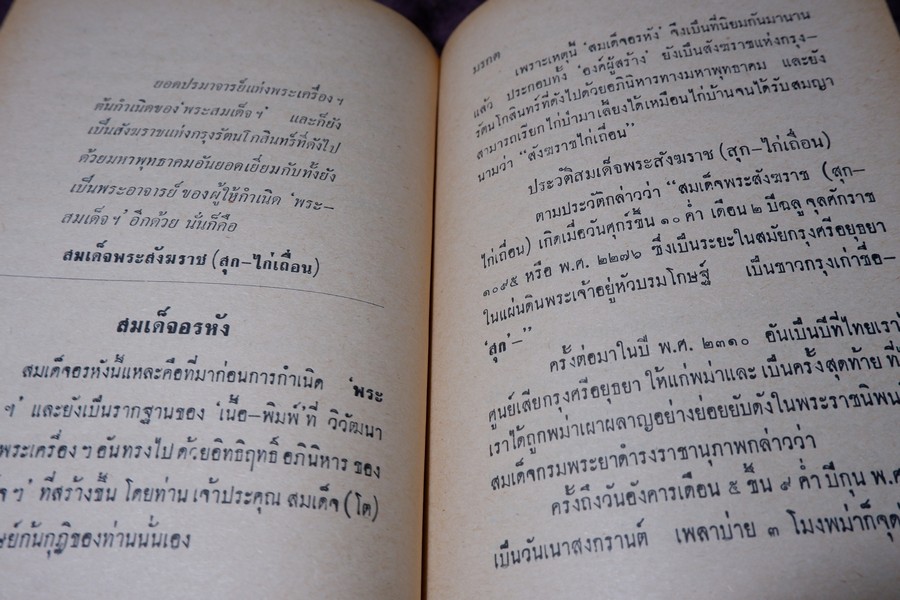 ยอดปรมาจารย์แห่งพระเครื่องฯ
ต้นกำเนิดของ'พระสมเด็จฯ' และก็ยัง
เป็นสังฆราชแห่งกรุงรัตนโกสินทร์ที่ดังไป
ด้วยมหาพุทธาคมอันยอดเยี่ยมกับทั้งยัง
เป็นพระอาจารย์ของผู้ให้กำเนิด 'พระ-
สมเด็จฯ'อีกด้วย นั่นก็คือ
สมเด็จพระสังฆราช (สุก-ไก่เถื่อน)
สมเด็จอรหัง
สมเด็จอรหังนี้แหละคือที่มาก่อนการกำเนิด 'พระ
ฯ' และยังเป็นรากฐานของ 'เนื้อ-พิมพ์'ที่ วิวัฒนา
พระเครื่องฯอันทรงไปด้วยอิทธิฤทธิ์อภินิหาร ของ
ฯ' ที่สร้างขึ้น โดยท่าน เจ้าประคุณ สมเด็จ (โต)
กันกุฏิของท่านนั่นเอง
มรกต เพราะเหตุนี้ 'สมเด็จอรหัง' จึงเป็นที่นิยมกันมานาน
แล้ว ประกอบทั้ง 'องค์ผู้สร้าง' ยังเป็นสังฆราชแห่งกรุง-
รัตนโกสินทร์ที่ดังไปด้วยอภินิหารทางมหาพุทธาคม และยัง
สามารถเรียกไก่ป่ามาเลี้ยงได้เหมือนไก่บ้านจนได้รับสมญา
นามว่า "สังฆราชไก่เถื่อน"
ประวัติสมเด็จพระสังฆราช (สุก-ไก่เถื่อน)
ตามประวัติกล่าวว่า "สมเด็จพระสังฆราช (สุก-
ไก่เถื่อน) เกิดเมื่อวันศุกร์ขึ้น ๑๐ ค่ำ เดือน ๒ ปีฉลู จุลศักราช
๑๐๙๕ หรือ พ.ศ. ๒๒๗๖ ซึ่งเป็นระยะในสมัยกรุงศรีอยุธยา
ในแผ่นดินพระเจ้าอยู่หัวบรมโกษฐ์ เป็นชาวกรุงเก่าชื่อ-
'สุก'-"
ครั้งต่อมาในปี พ.ศ. ๒๓๑๐ อันเป็นปีที่ไทยเรา
ศูนย์เสียกรุงศรีอยุธยา ให้แก่พม่าและ เป็นครั้งสุดท้าย ที่
เราได้ถูกพม่าเผาผลาญอย่างย่อยยับดังในพระราชนิพน
สมเด็จกรมพระยาดำรงราชานุภาพกล่าวว่า
ครั้งถึงวันอังคารเดือน ๕ ขึ้น ๙ ค่ำ ปีกุน พ.ศ
เป็นวันเนาสงกรานต์ เพลาบ่าย ๓ โมงพม่าก็จุด